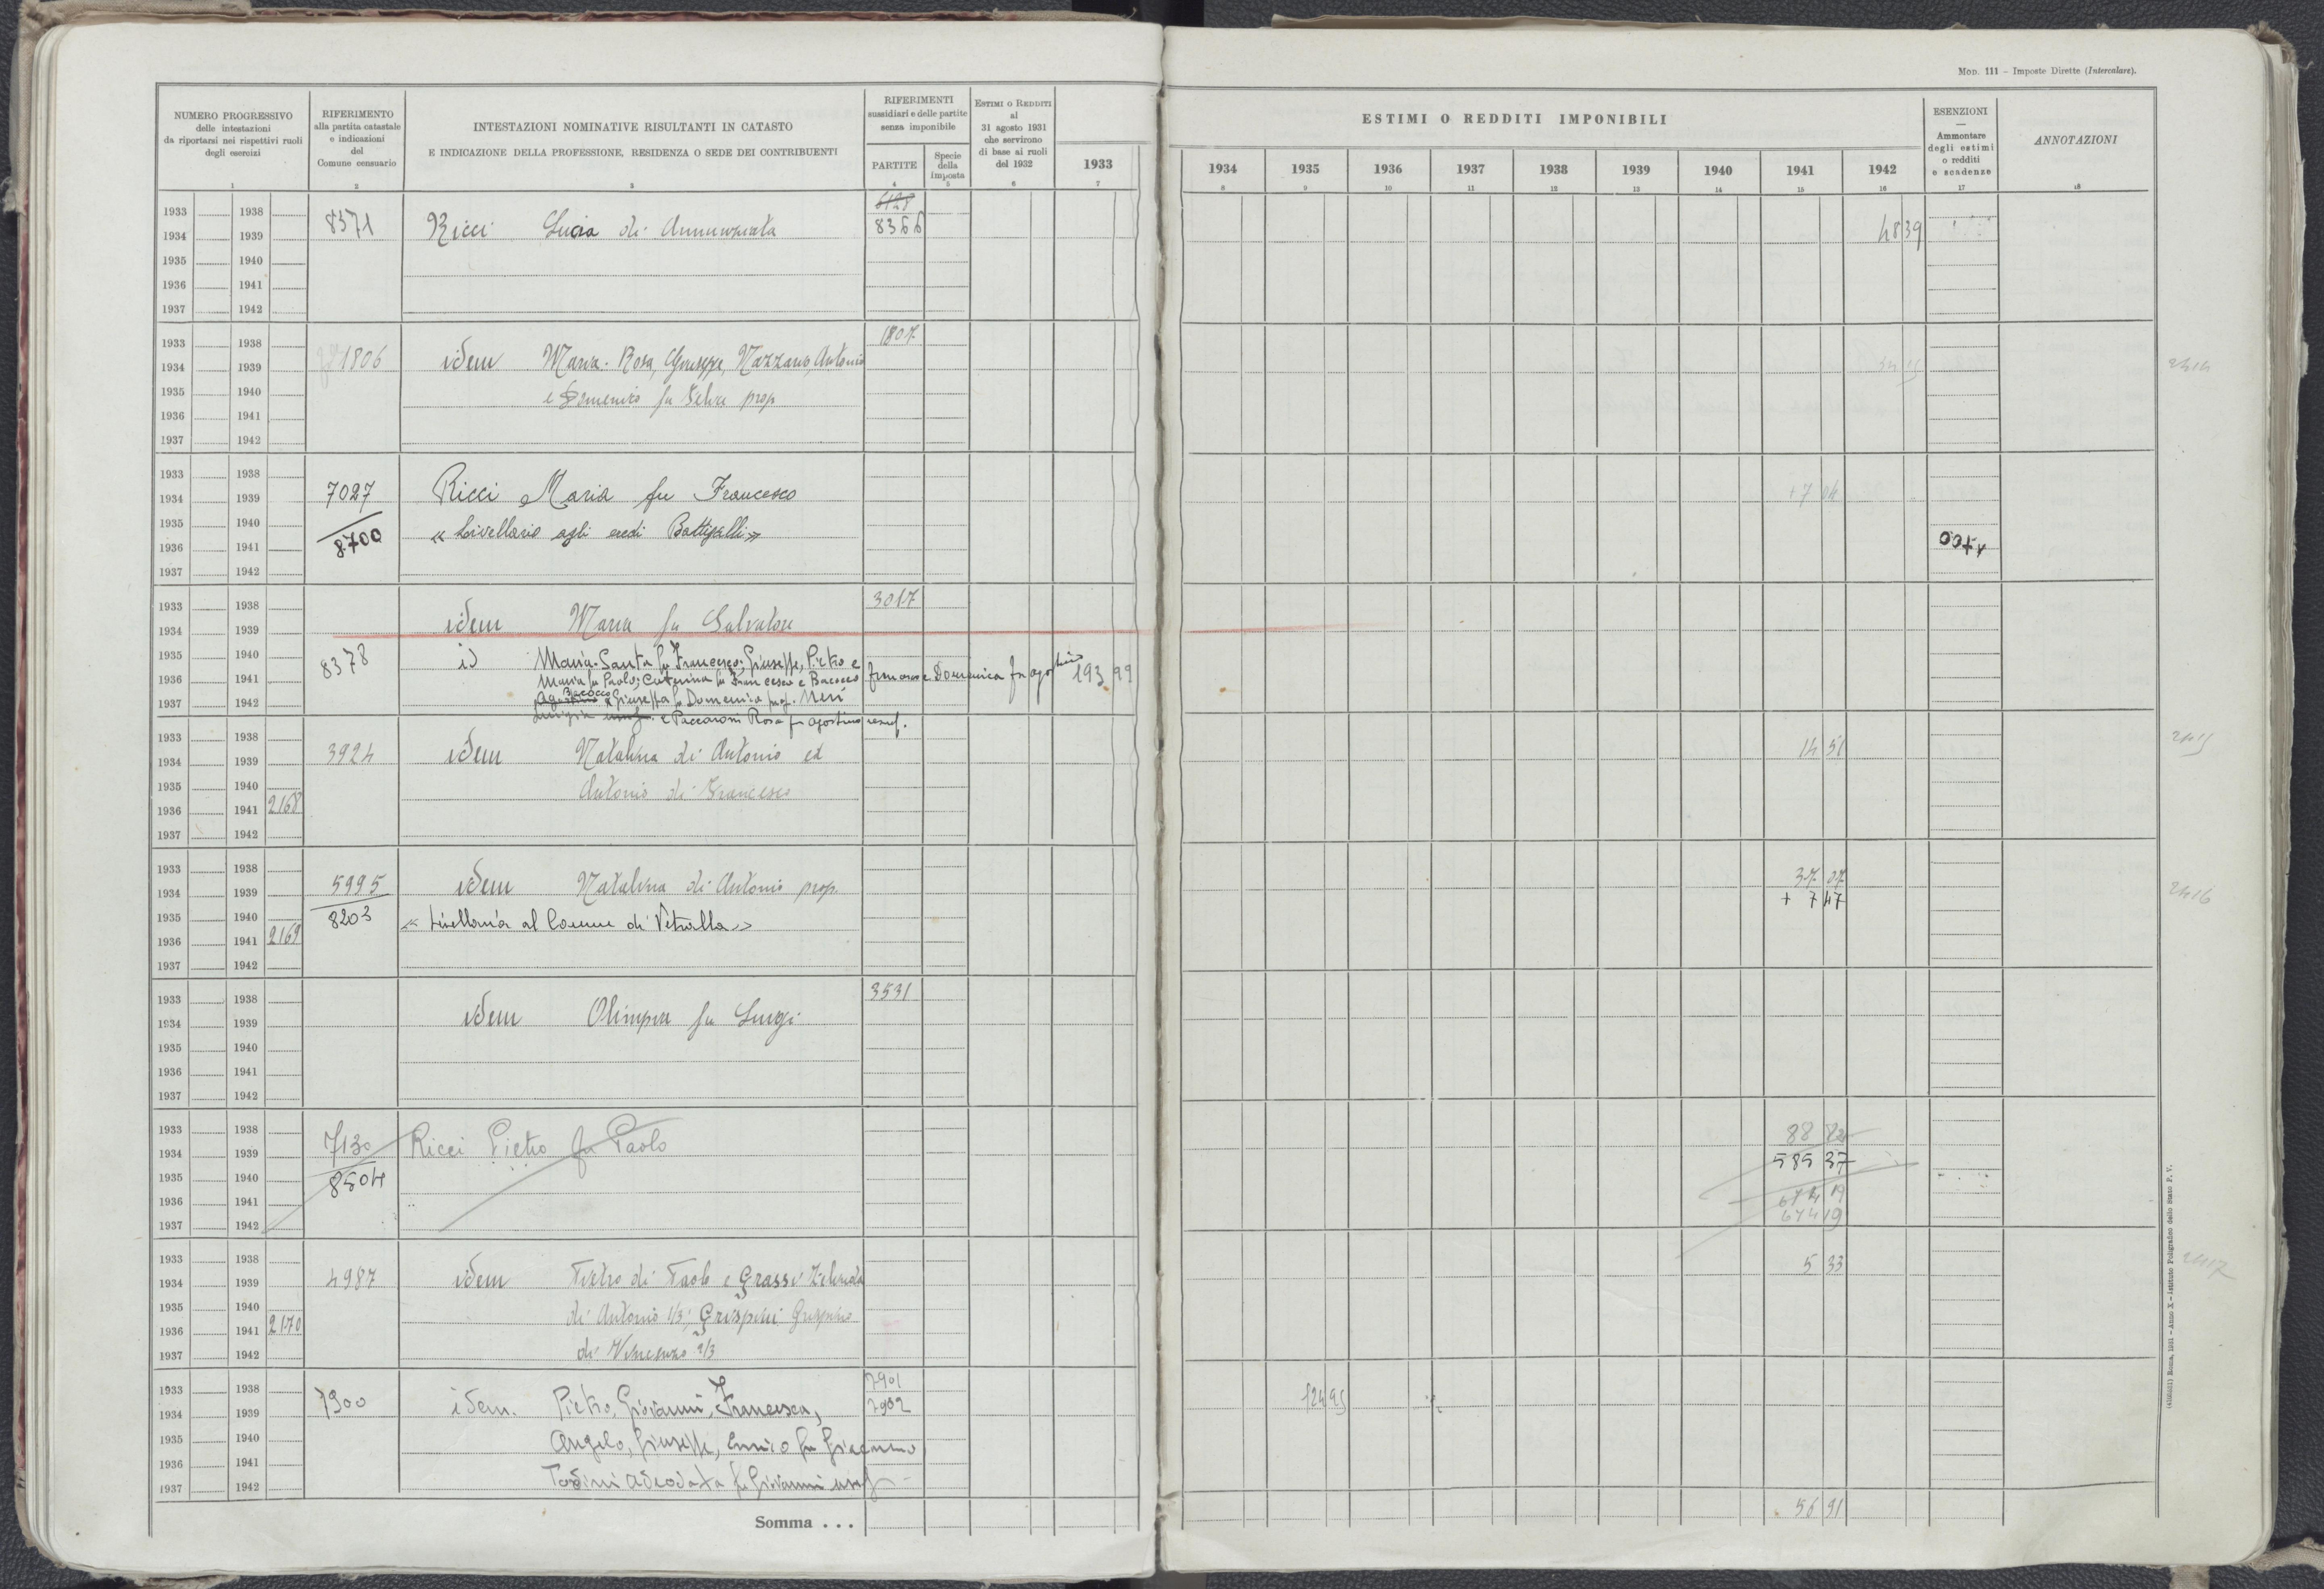 MOD. 111 – Imposte Dirette (Intercalare).
NUMERO PROGRESSIVO
delle intestazioni
da riportarsi nei rispettivi ruoli
degli esercizi
RIFERIMENTO
alla partita catastale
e indicazioni
del
Comune censuario
INTESTAZIONI NOMINATIVE RISULTANTI IN CATASTO
E INDICAZIONE DELLA PROFESSIONE, RESIDENZA O SEDE DEI CONTRIBUENTI
RIFERIMENTI
sussidiari e delle partite
senza imponibile
PARTITE
Specie
della
imposta
ESTIMI O REDDITI
al
31 agosto 1931
che servirono
di base ai ruoli
del 1932
ESTIMI O REDDITI IMPONIBILI
1933 1934 1935 1936 1937 1938 1939 1940 1941 1942
ESENZIONI
—
Ammontare
degli estimi
o redditi
e scadenze
ANNOTAZIONI
1 2 3 4 5 6 7 8 9 10 11 12 13 14 15 16 17 18
6128
1933 1938 8371 Ricci Lucia di Annunziata 8366 48 39
1934 1939
1935 1940
1936 1941
1937 1942
1933 1938 1807
1934 1939 1806 idem Maria-Rosa, Giuseppe, Nazzareno, Antonio
1935 1940 e Domenico fu Felice prop
1936 1941
1937 1942
1933 1938
1934 1939 7027 Ricci Maria fu Francesco +7 04
1935 1940 « Livellario agli eredi Battigalli »
1936 1941 8700
1937 1942
1933 1938 3017
1934 1939 idem Maria fu Salvatore
1935 1940 8378 id Maria-Santa fu Francesco; Giuseppe, Pietro e
1936 1941 Maria fu Paolo; Caterina fu Francesco e Bacocco Francesco e Domenica fu Agostino 193 99
1937 1942 Agostino Bacocco e Giuseppa fu Domenico prop. Neri
e Paccaroni Rosa fu Agostino usuf.
1933 1938
1934 1939 3924 idem Natalina di Antonio ed 14 51 2415
1935 1940 Antonio di Francesco
1936 1941 2168
1937 1942
1933 1938
1934 1939 5995 idem Natalina di Antonio prop. 37 07 2416
+ 7 47
1935 1940 8203 « Livellaria al Comune di Vetralla »
1936 1941 2169
1937 1942
1933 1938 3531
1934 1939 idem Olimpia fu Luigi
1935 1940
1936 1941
1937 1942
1933 1938
1934 1939 7130 Ricci Pietro fu Paolo 88 82
1935 1940 8504 585 37
1936 1941 674 19
1937 1942 674 19
1933 1938
1934 1939 4987 idem Pietro di Paolo e Grassi Zelinda 5 33 2417
1935 1940 di Antonio 1/3; Grispini Grispino
1936 1941 2170
1937 1942 di Vincenzo 2/3
1933 1938 7901
1934 1939 7900 idem. Pietro, Giovanni, Francesca, 7902 124 95
1935 1940 Angelo, Giuseppe, Enrico fu Giacomo
1936 1941
1937 1942 Todini Adeodata fu Giovanni usuf
Somma . . . 56 91
Roma, 1931 – Anno X – Istituto Poligrafico dello Stato P. V.